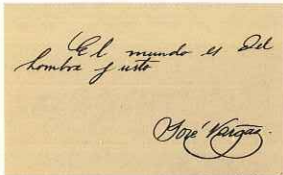 El mundo es del
hombre justo
José Vargas.